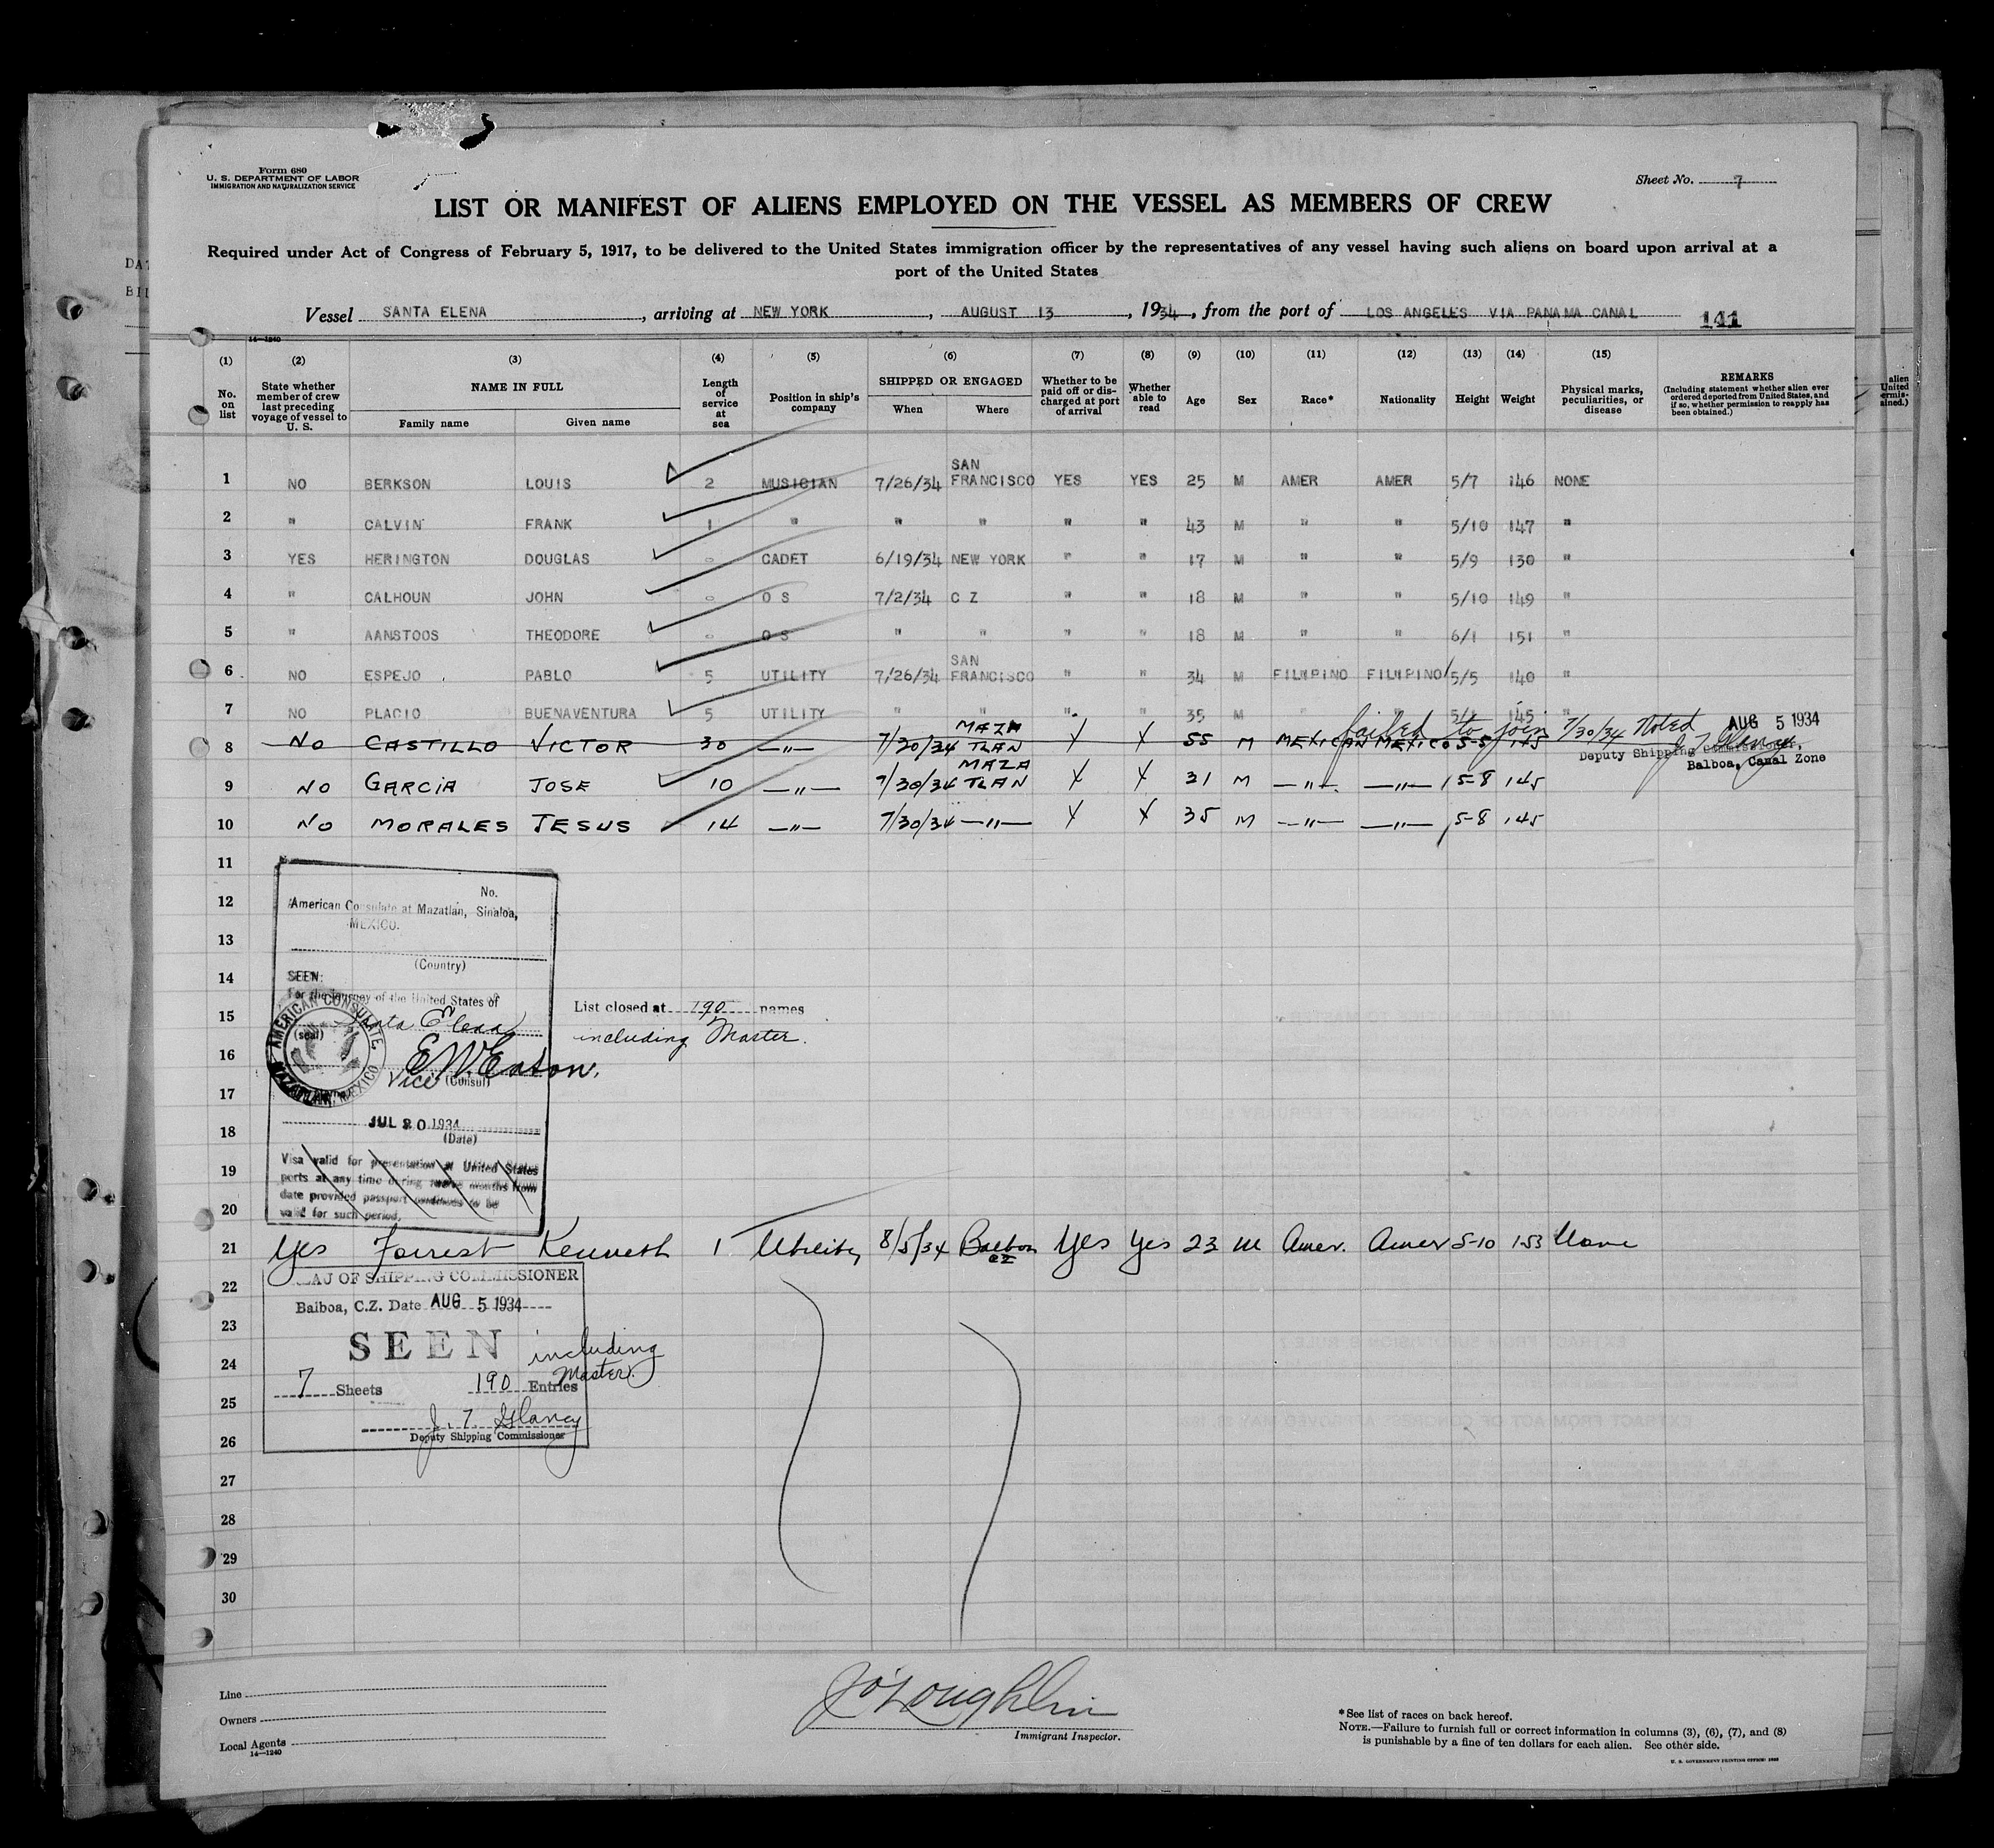 Form 680
U. S. DEPARTMENT OF LABOR
IMMIGRATION AND NATURALIZATION SERVICE
Sheet No. 7
LIST OR MANIFEST OF ALIENS EMPLOYED ON THE VESSEL AS MEMBERS OF CREW
Required under Act of Congress of February 5, 1917, to be delivered to the United States immigration officer by the representatives of any vessel having such aliens on board upon arrival at a
port of the United States
Vessel SANTA ELENA, arriving at NEW YORK, AUGUST 13, 1934, from the port of LOS ANGELES VIA PANAMA CANAL 141
14-1240
(1) (2) (3) (4) (5) (6) (7) (8) (9) (10) (11) (12) (13) (14) (15)
No. on list
State whether member of crew last preceding voyage of vessel to U. S.
NAME IN FULL
Family name Given name
Length of service at sea
Position in ship's company
SHIPPED OR ENGAGED
When Where
Whether to be paid off or discharged at port of arrival
Whether able to read
Age Sex Race* Nationality Height Weight
Physical marks, peculiarities, or disease
REMARKS
(Including statement whether alien ever ordered deported from United States, and if so, whether permission to reapply has been obtained.)
1 NO BERKSON LOUIS 2 MUSICIAN 7/26/34 SAN FRANCISCO YES YES 25 M AMER AMER 5/7 146 NONE
2 " CALVIN FRANK 1 " " " " " 43 M " " 5/10 147 "
3 YES HERINGTON DOUGLAS 0 CADET 6/19/34 NEW YORK " " 17 M " " 5/9 130 "
4 " CALHOUN JOHN 0 O S 7/2/34 C Z " " 18 M " " 5/10 149 "
5 " AANSTOOS THEODORE 0 O S " " " " 18 M " " 6/1 151 "
6 NO ESPEJO PABLO 5 UTILITY 7/26/34 SAN FRANCISCO " " 34 M FILIPINO FILIPINO 5/5 140 "
7 NO PLACIO BUENAVENTURA 5 UTILITY " " " " 35 M " " 5/1 145 "
failed to join 7/30/34 Noted AUG 5 1934
8 NO CASTILLO VICTOR 30 —"— 7/30/34 MAZATLAN X X 55 M MEXICAN MEXICO 5-5 145
Deputy Shipping Commissioner,
Balboa, Canal Zone
9 NO GARCIA JOSE 10 —"— 7/30/34 MAZATLAN X X 31 M —"— —"— 5-8 145
10 NO MORALES JESUS 14 —"— 7/30/34 —"— X X 35 M —"— —"— 5-8 145
11
12
13
14
15
16
17
18
19
20
No.
American Consulate at Mazatlán, Sinaloa,
MEXICO.
(Country)
SEEN:
For the journey of the United States of
Santa Elena
(seal)
AMERICAN CONSULATE
MAZATLAN, MEXICO
E. W. Eaton.
Vice (Consul)
JUL 30 1934
(Date)
Visa valid for presentation at United States
ports at any time during twelve months from
date provided passport continues to be
valid for such period.
List closed at 190 names
including Master.
21 Yes Forrest Kenneth 1 Utility 8/5/34 Balboa CZ Yes Yes 23 M Amer. Amer 5-10 153 None
22
23
24
25
26
27
28
29
30
OF SHIPPING COMMISSIONER
Balboa, C.Z. Date AUG 5 1934
SEEN including
Master.
7 Sheets 190 Entries
J. T. Glancy
Deputy Shipping Commissioner
Line
Owners
Local Agents
14-1240
J O'Loughlin
Immigrant Inspector.
*See list of races on back hereof.
NOTE.—Failure to furnish full or correct information in columns (3), (6), (7), and (8)
is punishable by a fine of ten dollars for each alien. See other side.
U. S. GOVERNMENT PRINTING OFFICE